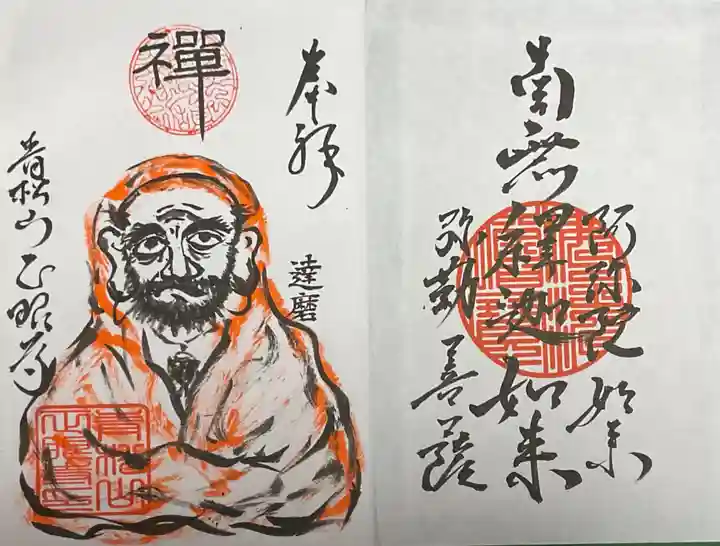 阿弥陀如来
南無釋迦如来
弥勒菩薩
奉拝
達磨
禪
青松山正眼寺